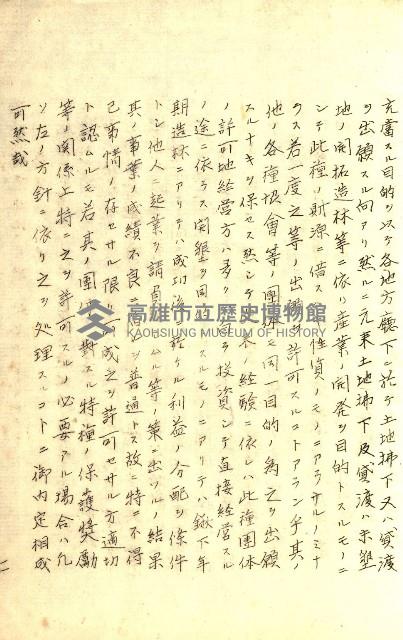 充當スル目的ヲ以テ各地方廳下ニ於テ土地拂下又ハ貸渡
ヲ出願スル向アリ然ルニ元來土地拂下及貸渡ハ未墾
地ノ開拓造林等ニ依リ産業ノ開発ヲ目的トスルモノニ
シテ此種ノ財源ニ借スヘキ性質ノモノニアラサルノミナ
ラス若一度之等ノ出願ヲ許可スルコトアランカ其ノ
他ノ各種協會等ノ團体モ同一目的ノ為之ヲ出願
スルナキヲ保セス然シテ ノ経験ニ依レハ此種團体
ノ許可地経営方ハ多クハ 投資シテ直接経営スル
ノ途ニ依ラス開墾 同 スルモノニアリテハ鍬下年
期造林ニアリテハ成功後ニ於ケル利益ノ分配ヲ條件
トシ他人ニ起業ヲ請負 ムル等ノ策ニ出ツル結果
其ノ事業ノ成績不良ニ ヲ普通トス故ニ特ニ不得
已事情ノ存セサル限リ 成之ヲ許可セサル方適切
ト認ムルモ若其ノ團 對スル特種ノ保護奨勵
等ノ関係上特ニ之ヲ許可スルノ必要アル場合ハ凡
ソ左ノ方針ニ依リ之ヲ處理スルコトニ御内定相成
可然哉
高雄市立歷史博物館
KAOHSIUNG MUSEUM OF HISTORY